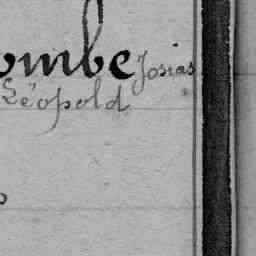 ombe Josias
Léopold